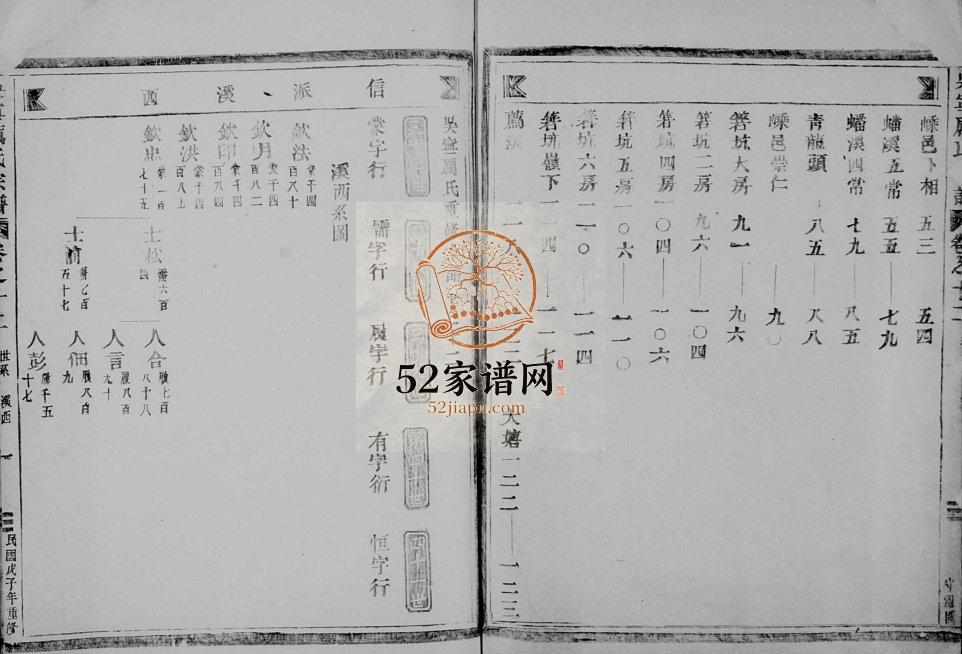 嵊邑下相 五三 五四
蟠溪五常 五五——七九
蟠溪四常 七九——八五
青龍頭 八五——八八
嵊邑崇仁 九〇
箬坑大房 九一——九六
箬坑二房 九六——一〇四
箬坑四房 一〇四——一〇六
箬坑五房 一〇六——一一〇
箬坑六房 一一〇——一一四
箬坑嶺下 一一四——一一七
大 一二二——一二三
吳寧厲氏重修
信派溪西
蒙字行 需字行 履字行 有字行 恒字行
溪西系圖
欽法 蒙千四百八十
欽月 蒙千四百八二
欽印 蒙千四百八四
欽洪 蒙千四百八五
欽忠 蒙一百七十五
士松 需六百四
士前 需七百五十七
人合 履七百八十八
人言 履八百九十
人佃 履八百九
人彭 履千五十七
世系 溪西 一
民國戊子年重修
52家谱网
52jiapu.com